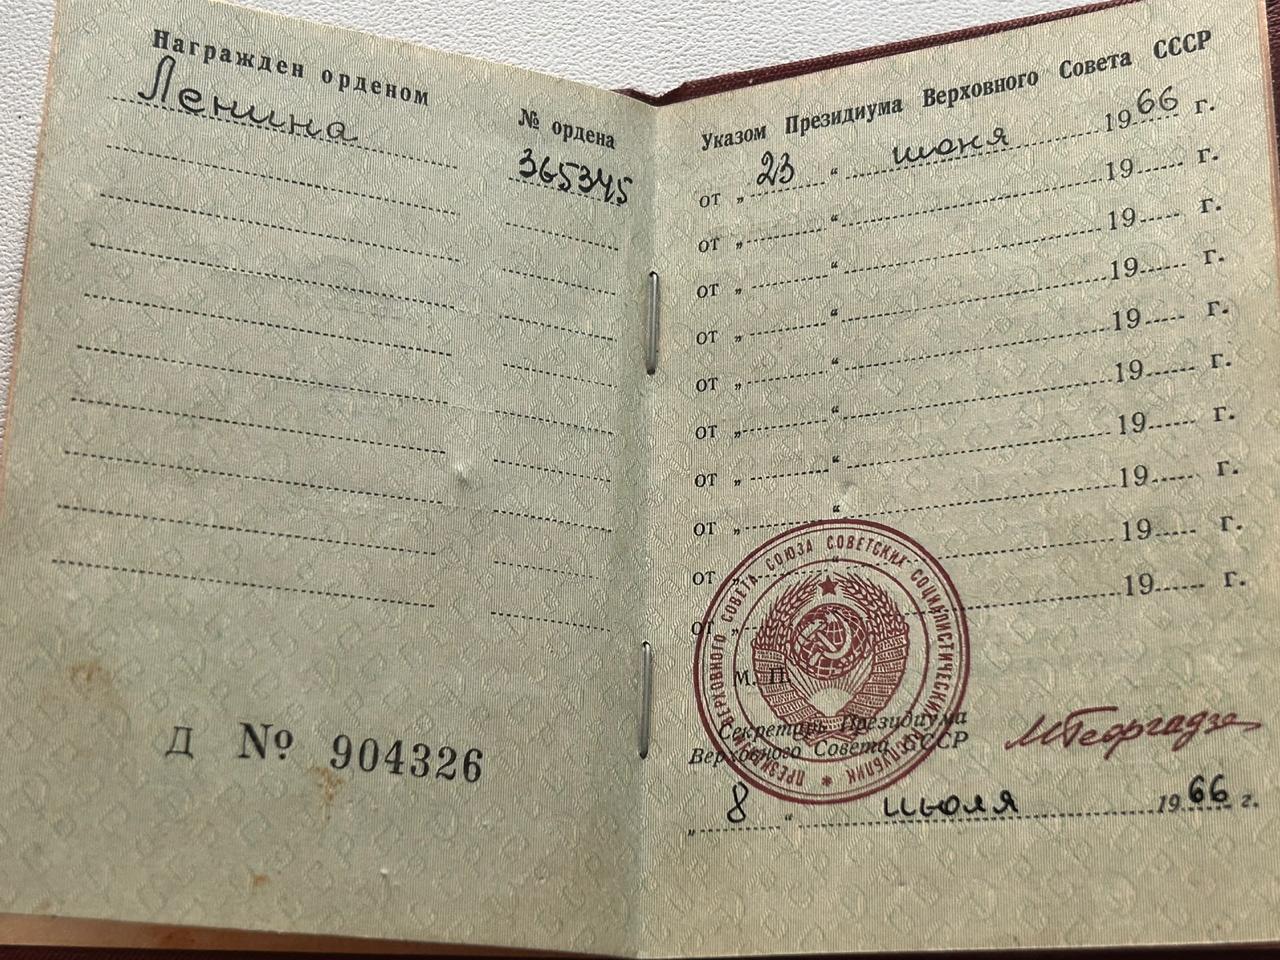 Награжден орденом
№ ордена
Ленина
365345
Д № 904326
Указом Президиума Верховного Совета СССР
от „ 23 “ июня 1966 г.
от „ “ 19 г.
от „ “ 19 г.
от „ “ 19 г.
от „ “ 19 г.
от „ “ 19 г.
от „ “ 19 г.
от „ “ 19 г.
от „ “ 19 г.
от „ “ 19 г.
ПРЕЗИДИУМ ВЕРХОВНОГО СОВЕТА СОЮЗА СОВЕТСКИХ СОЦИАЛИСТИЧЕСКИХ РЕСПУБЛИК
М. П.
Секретарь Президиума
Верховного Совета СССР
МГеоргадзе
„ 8 “ июля 1966 г.